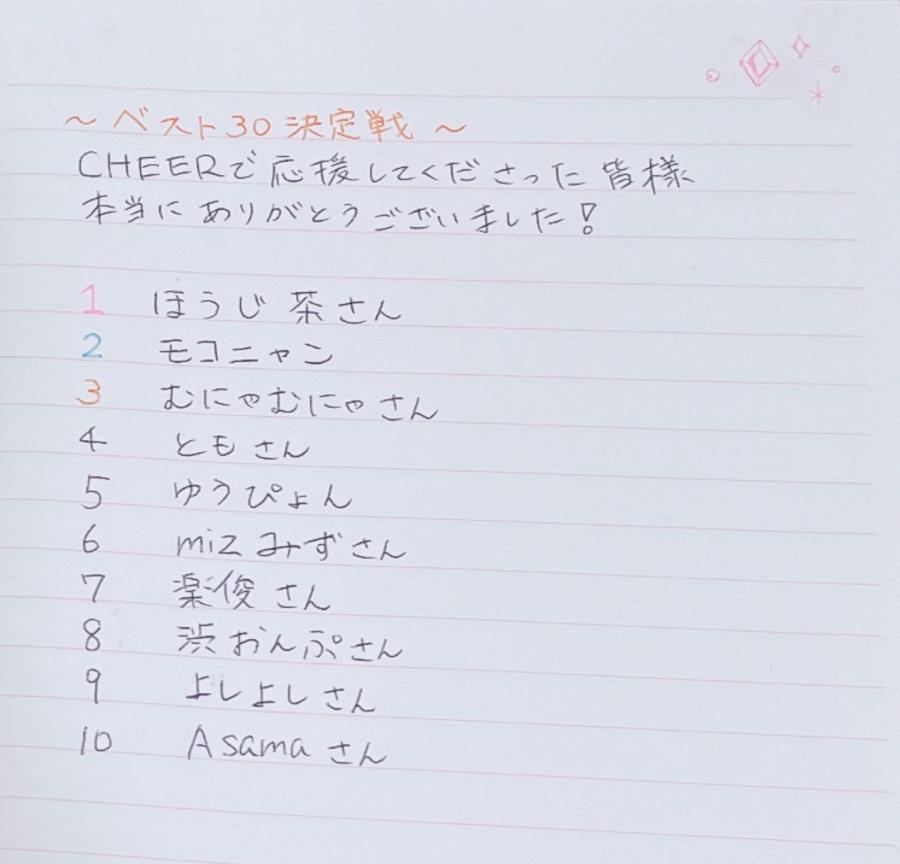 ～ベスト30決定戦～
CHEERで応援してくださった皆様
本当にありがとうございました!
1 ほうじ茶さん
2 モコニャン
3 むにゃむにゃさん
4 ともさん
5 ゆうぴょん
6 miz みずさん
7 楽俊さん
8 渋おんぷさん
9 よしよしさん
10 Asamaさん